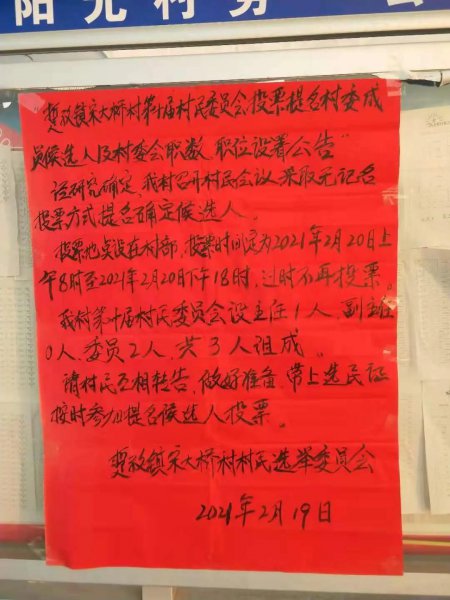 阳光村务 公
镇宋大桥村第十届村民委员会投票提名村委成
员候选人及村委会职数、职位设置公告"
经研究确定 我村召开村民会议 采取无记名
投票方式提名确定候选人。
投票地点设在村部，投票时间定为2021年2月20日上
午8时至2021年2月20日下午18时，过时不再投票。
我村第十届村民委员会设主任1人，副主任
0人，委员2人，共3人组成。
请村民互相转告，做好准备，带上选民证
按时参加提名候选人投票。
镇宋大桥村村民选举委员会
2021年2月19日